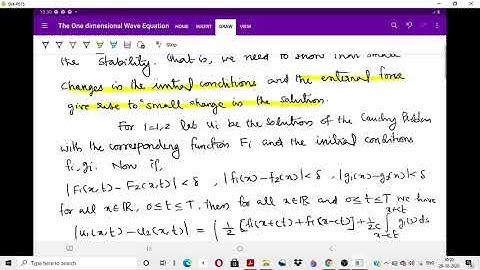 SM-P615
The One dimensional Wave Equation
HOME INSERT DRAW VIEW
Stop
the stability. That is, we need to show that small
changes in the initial conditions and the external force
give rise to small change in the solution.
For i=1,2 let ui be the solutions of the Cauchy Problem
with the corresponding function Fi and the initial conditions
fi, gi. Now if,
|F1(x,t) − F2(x,t)| < δ , |f1(x) − f2(x)| < δ , |g1(x) − g2(x)| < δ
for all x∈ℝ, 0≤t≤T, then for all x∈ℝ and 0≤t≤T we have
|u1(x,t) − u2(x,t)| = | 1/2 [f1(x+ct) + f1(x−ct)] + 1/2c ∫_{x−ct}^{x+ct} g1(s) ds
Type here to search
28-10-2020